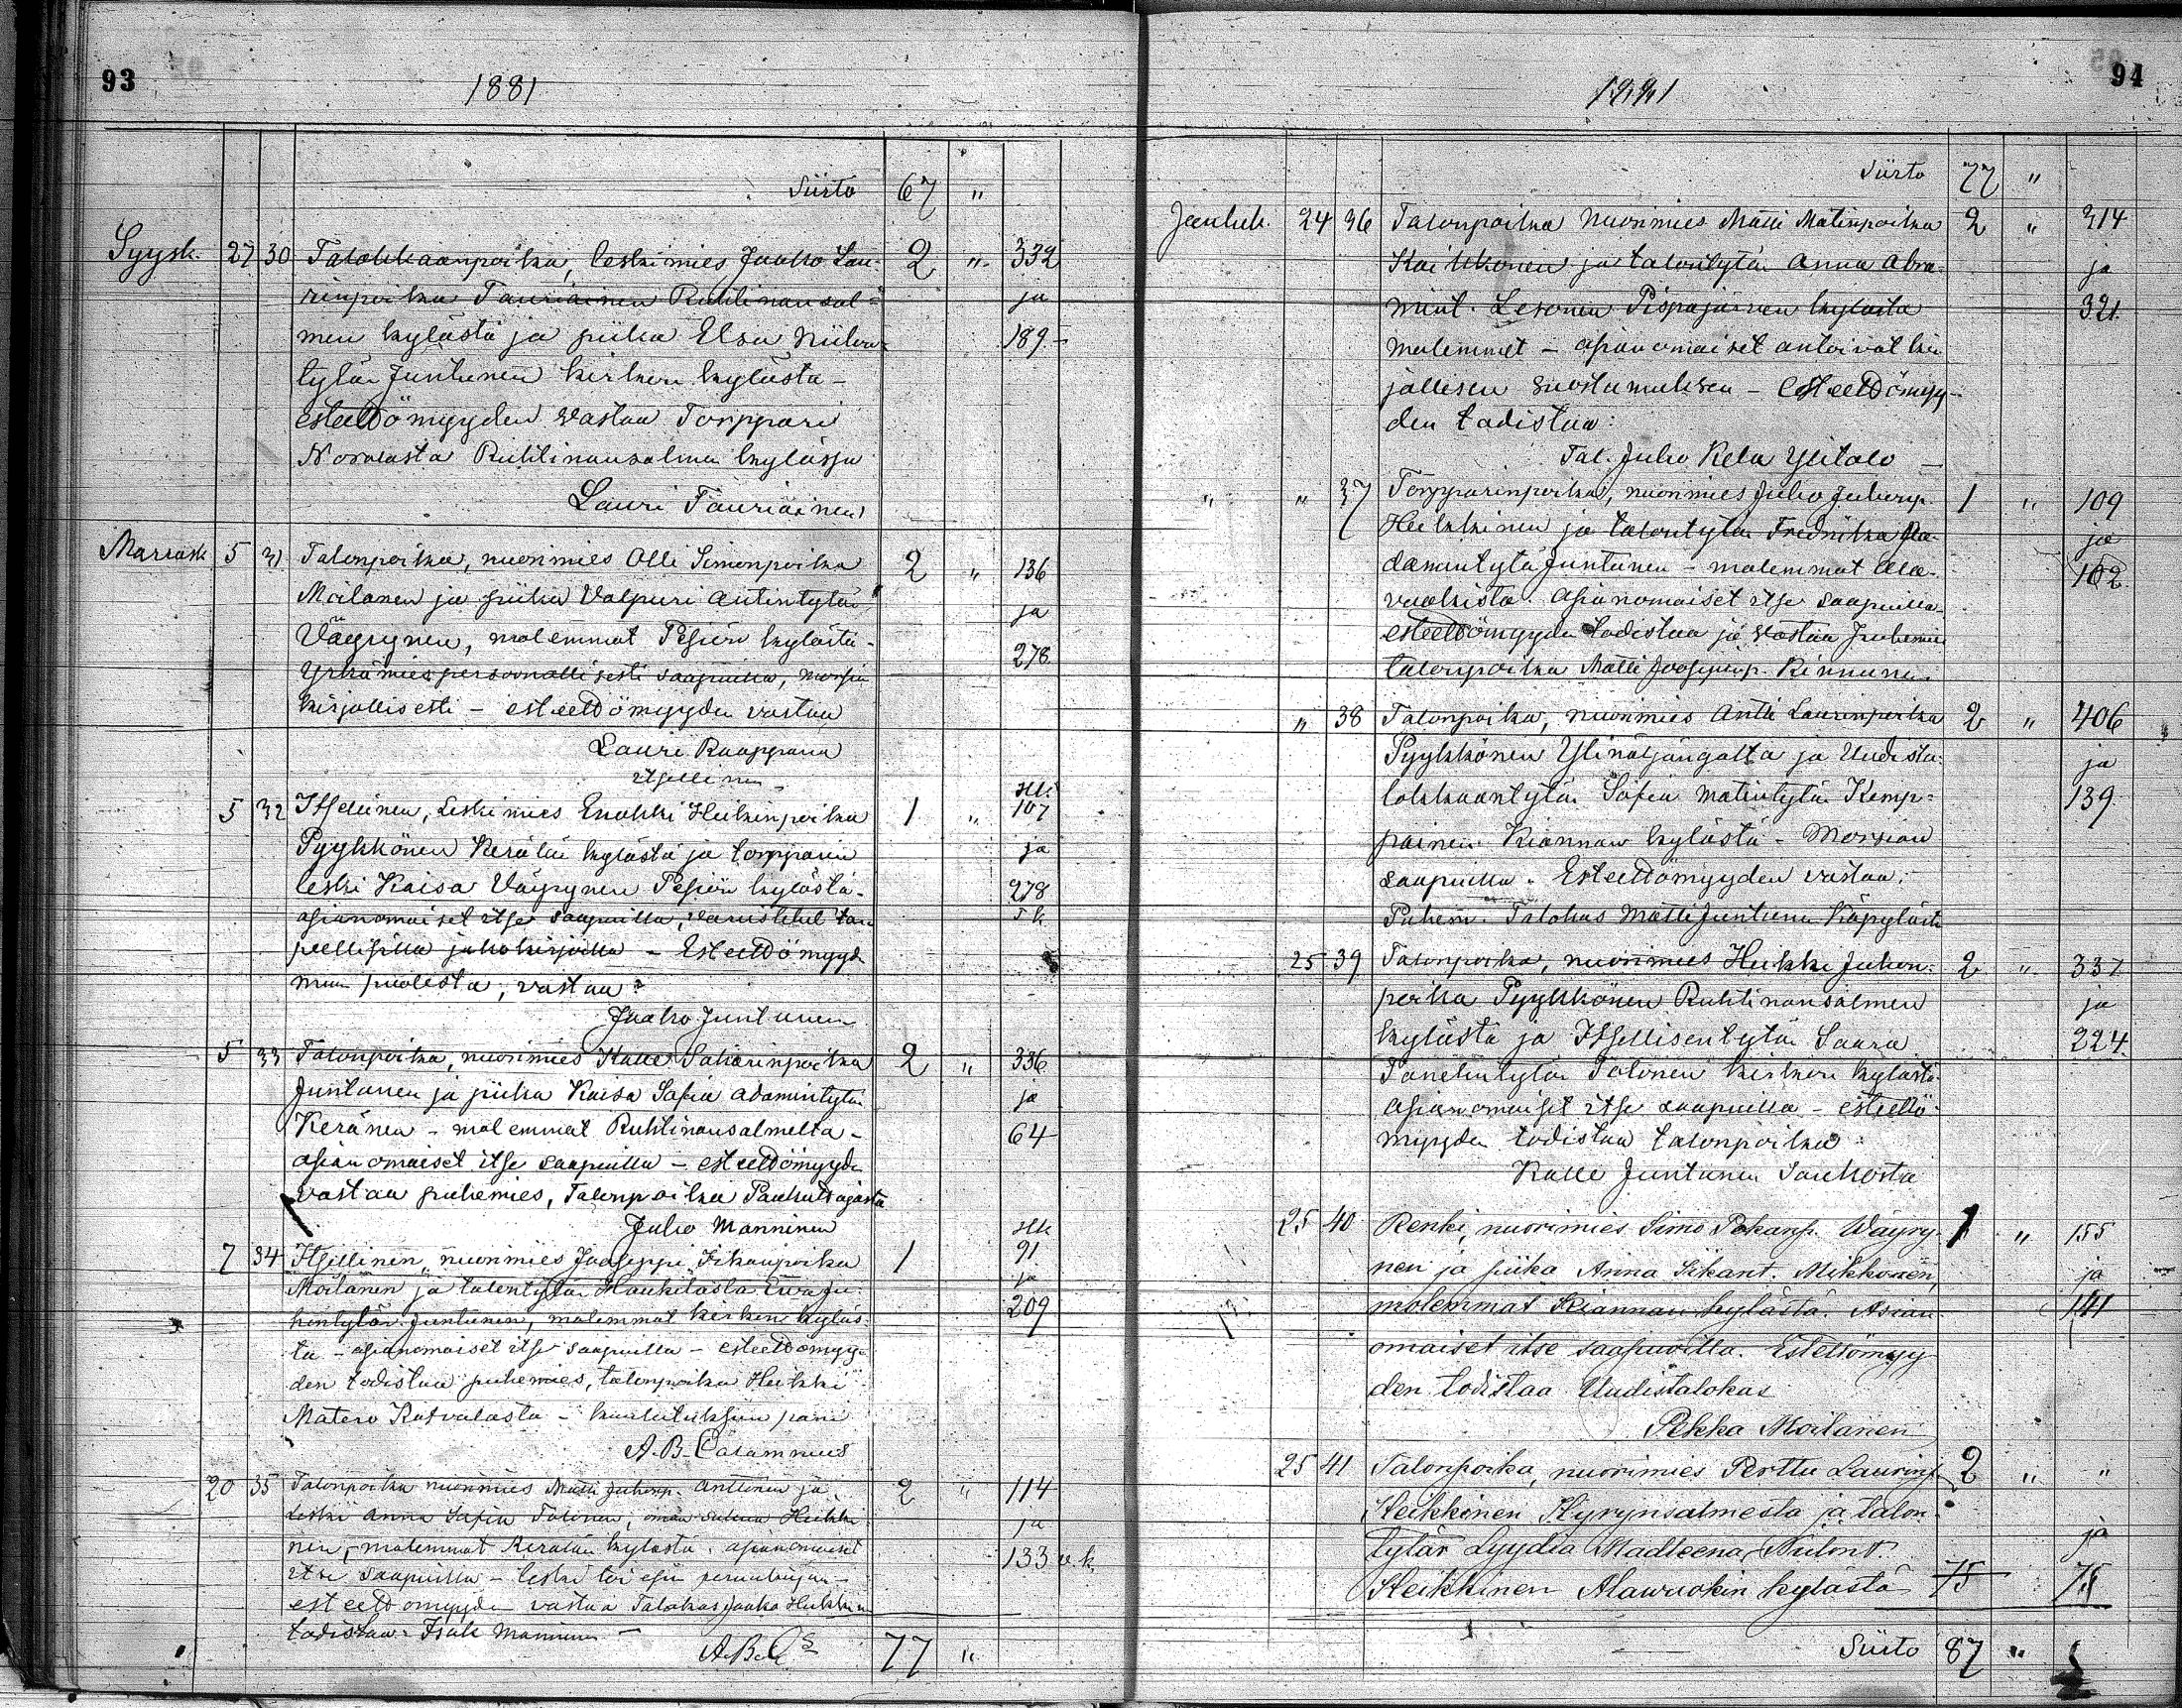 93
1881
Siirto 67 "
Syysk. 27 30 Talokkaanpoika, leskimies Jaako Lau- 2 " 332
rinpoika Tauriainen Ruhtinansal- ja
men kylästä ja piika Elsa Niilon- 189
tytär Juntunen kirkon kylästä -
esteettömyyden vastaa Torppari
Ruhtinansalmen kylässä
Lauri Tauriainen
Marrask 5 31 Talonpoika, nuorimies Olli Simonpoika 2 " 136
Moilanen ja piika Valpuri Antintytär ja
Väyrynen, molemmat Pesiön kylästä - 278
Yrkämies persoonallisesti saapuilla, morsian
kirjallisesti - esteettömyyden vastaa
Lauri Raappana
itsellinen
5 32 Itsellinen, Leskimies Enokki Heikinpoika 1 " 107
Pyykkönen Kerälän kylästä ja torpparin ja
leski Kaisa Väyrynen Pesiön kylästä - 278
asianomaiset itse saapuilla, varustetut tar-
peellisilla jakokirjoilla - Esteettömyyd.
muun puolesta, vastaa:
Jaako Juntunen
5 33 Talonpoika, nuorimies Kalle Sakarinpoika 2 " 336
Juntunen ja piika Kaisa Sofia Adamintytär ja
Keränen - molemmat Ruhtinansalmelta - 64
asianomaiset itse saapuilla - esteettömyyden
vastaa puhemies, Talonpoika
Juho Manninen
7 34 Itsellinen, nuorimies Jooseppi Iikanpoika 1 91
Moilanen ja talontytär Haukilasta Eeva Ju- ja
hontytär Juntunen, molemmat kirkon kyläs- 209
tä - asianomaiset itse saapuilla - esteettömyy-
den todistaa puhemies, talonpoika Heikki
Matero Katvalasta - kuulutuksiin pani
A. B. Calamnius
20 35 Talonpoika nuorimies Matti Juhonp. Anttonen ja 2 " 114
Leski Anna Sofia Tolonen, omaa sukua Heikki- ja
nen, molemmat Kerälän kylästä. asianomaiset 133 v.k.
itse saapuilla - leski toi esiin perunkirjan -
esteettömyyden vastaa Talokas Jaako Heikkinen
todistaa: Manninen
A. B. Cs
77 "
94
1881
Siirto 77 "
Jouluk. 24 36 Talonpoika nuorimies Matti Matinpoika 2 " 314
Keikkonen ja talontytär Anna Abra- ja
mint. Lesonen Pispajärven kylästä 321.
molemmat - asianomaiset antoivat kir-
jallisen suostumuksen - Esteettömyy-
den todistaa:
Tal. Juho Kela Ylitalo
" " 37 Torpparinpoika, nuorimies Juho Juhonp. 1 " 109
Heikkinen ja talontytär Fredriika A- ja
damintytär Juntunen - molemmat Ala- 102.
vuokista. asianomaiset itse saapuilla -
esteettömyyden todistaa ja vastaa Puhemies
talonpoika Matti Joosepinp. Kinnunen.
" 38 Talonpoika, nuorimies Antti Laurinpoika 2 " 406
Pyykkönen Ylinäljängältä ja Uudista- ja
lokkaantytär Sofia Matintytär Kemp- 139.
painen Kiannan kylästä - Morsian
saapuilla. Esteettömyyden vastaa:
Puhem. Talokas Matti Juntunen Käpylästä
25 39 Talonpoika, nuorimies Heikki Juhon- 2 " 337
poika Pyykkönen Ruhtinansalmen ja
kylästä ja Itsellisentytär Saara 224.
Tanelintytär Tolonen kirkon kylästä -
asianomaiset itse saapuilla - esteettö-
myyden todistaa talonpoika:
Kalle Juntunen
25 40 Renki, nuorimies Simo Pekanp. Wäyry- 1 " 155
nen ja piika Anna Iikant. Mikkonen, ja
molemmat Kiannan kylästä. Asian- 141
omaiset itse saapuvilla. Estettömyy
den todistaa Uudistalokas
Pekka Moilanen
25 41 Talonpoika, nuorimies Perttu Laurinp. 2 " "
Heikkinen Hyrynsalmesta ja talon-
tytär Lyydia Madleena Niilont. ja
Heikkinen Alawuokin kylästä 75 75
Siirto 87 "